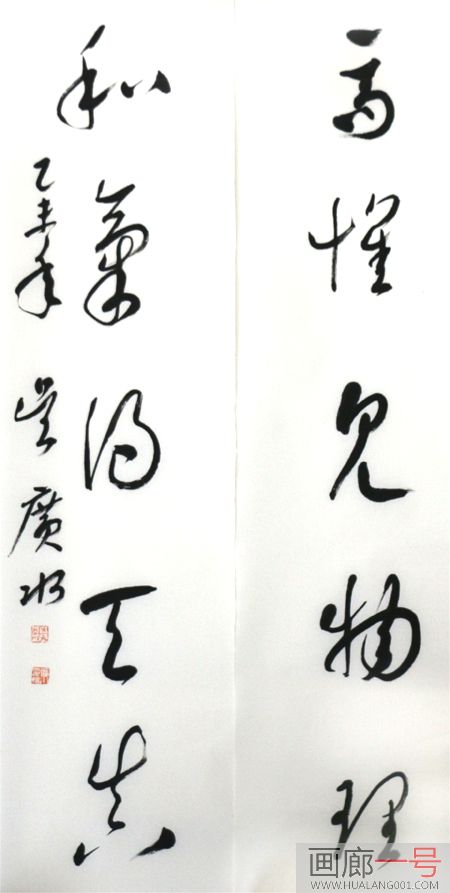 高懷見物理
和氣得天真
乙未年 吳廣冰
画廊一号
WWW.HUALANG001.COM